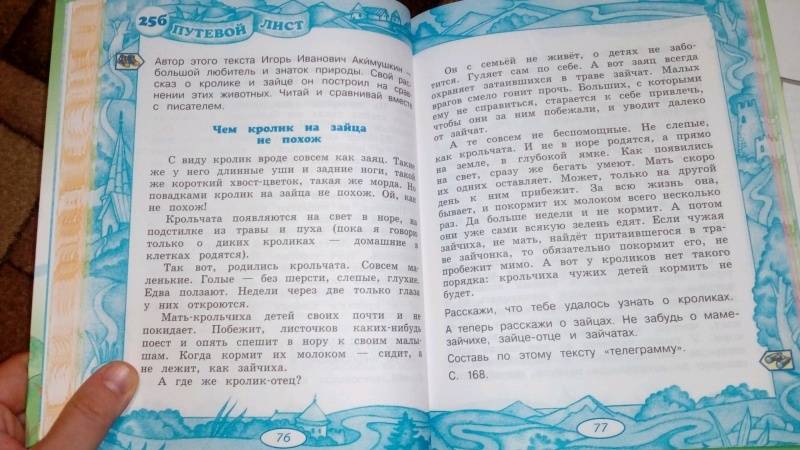 256
ПУТЕВОЙ ЛИСТ
Автор этого текста Игорь Иванович Аки́мушкин –
большой любитель и знаток природы. Свой рас-
сказ о кролике и зайце он построил на срав-
нении этих животных. Читай и сравнивай вместе
с писателем.
Чем кролик на зайца
не похож
С виду кролик вроде совсем как заяц. Такие
же у него длинные уши и задние ноги, такой
же короткий хвост-цветок, такая же морда. Но
повадками кролик на зайца не похож. Ой, как
не похож!
Крольчата появляются на свет в норе, на
подстилке из травы и пуха (пока я говорю
только о диких кроликах — домашние в
клетках родятся).
Так вот, родились крольчата. Совсем ма-
ленькие. Голые — без шерсти, слепые, глухие.
Едва ползают. Недели через две только глаза
у них откроются.
Мать-крольчиха детей своих почти и не
покидает. Побежит, листочков каких-нибудь
поест и опять спешит в нору к своим малы-
шам. Когда кормит их молоком — сидит, а
не лежит, как зайчиха.
А где же кролик-отец?
76
Он с семьёй не живёт, о детях не забо-
тится. Гуляет сам по себе. А вот заяц всегда
охраняет затаившихся в траве зайчат. Малых
врагов смело гонит прочь. Больших, с которыми
ему не справиться, старается к себе привлечь,
чтобы они за ним побежали, и уводит далеко
от зайчат.
А те совсем не беспомощные. Не слепые,
как крольчата. И не в норе родятся, а прямо
на земле, в глубокой ямке. Как появились
на свет, сразу же бегать умеют. Мать скоро
их одних оставляет. Может, только на другой
день к ним прибежит. За всю жизнь она,
бывает, и покормит их молоком всего несколько
раз. Да больше недели и не кормит. А потом
они уже сами всякую зелень едят. Если чужая
зайчиха, не мать, найдёт притаившегося в тра-
ве зайчонка, то обязательно покормит его, не
пробежит мимо. А вот у кроликов нет такого
порядка: крольчиха чужих детей кормить не
будет.
Расскажи, что тебе удалось узнать о кроликах.
А теперь расскажи о зайцах. Не забудь о маме-
зайчихе, зайце-отце и зайчатах.
Составь по этому тексту «телеграмму».
С. 168.
77